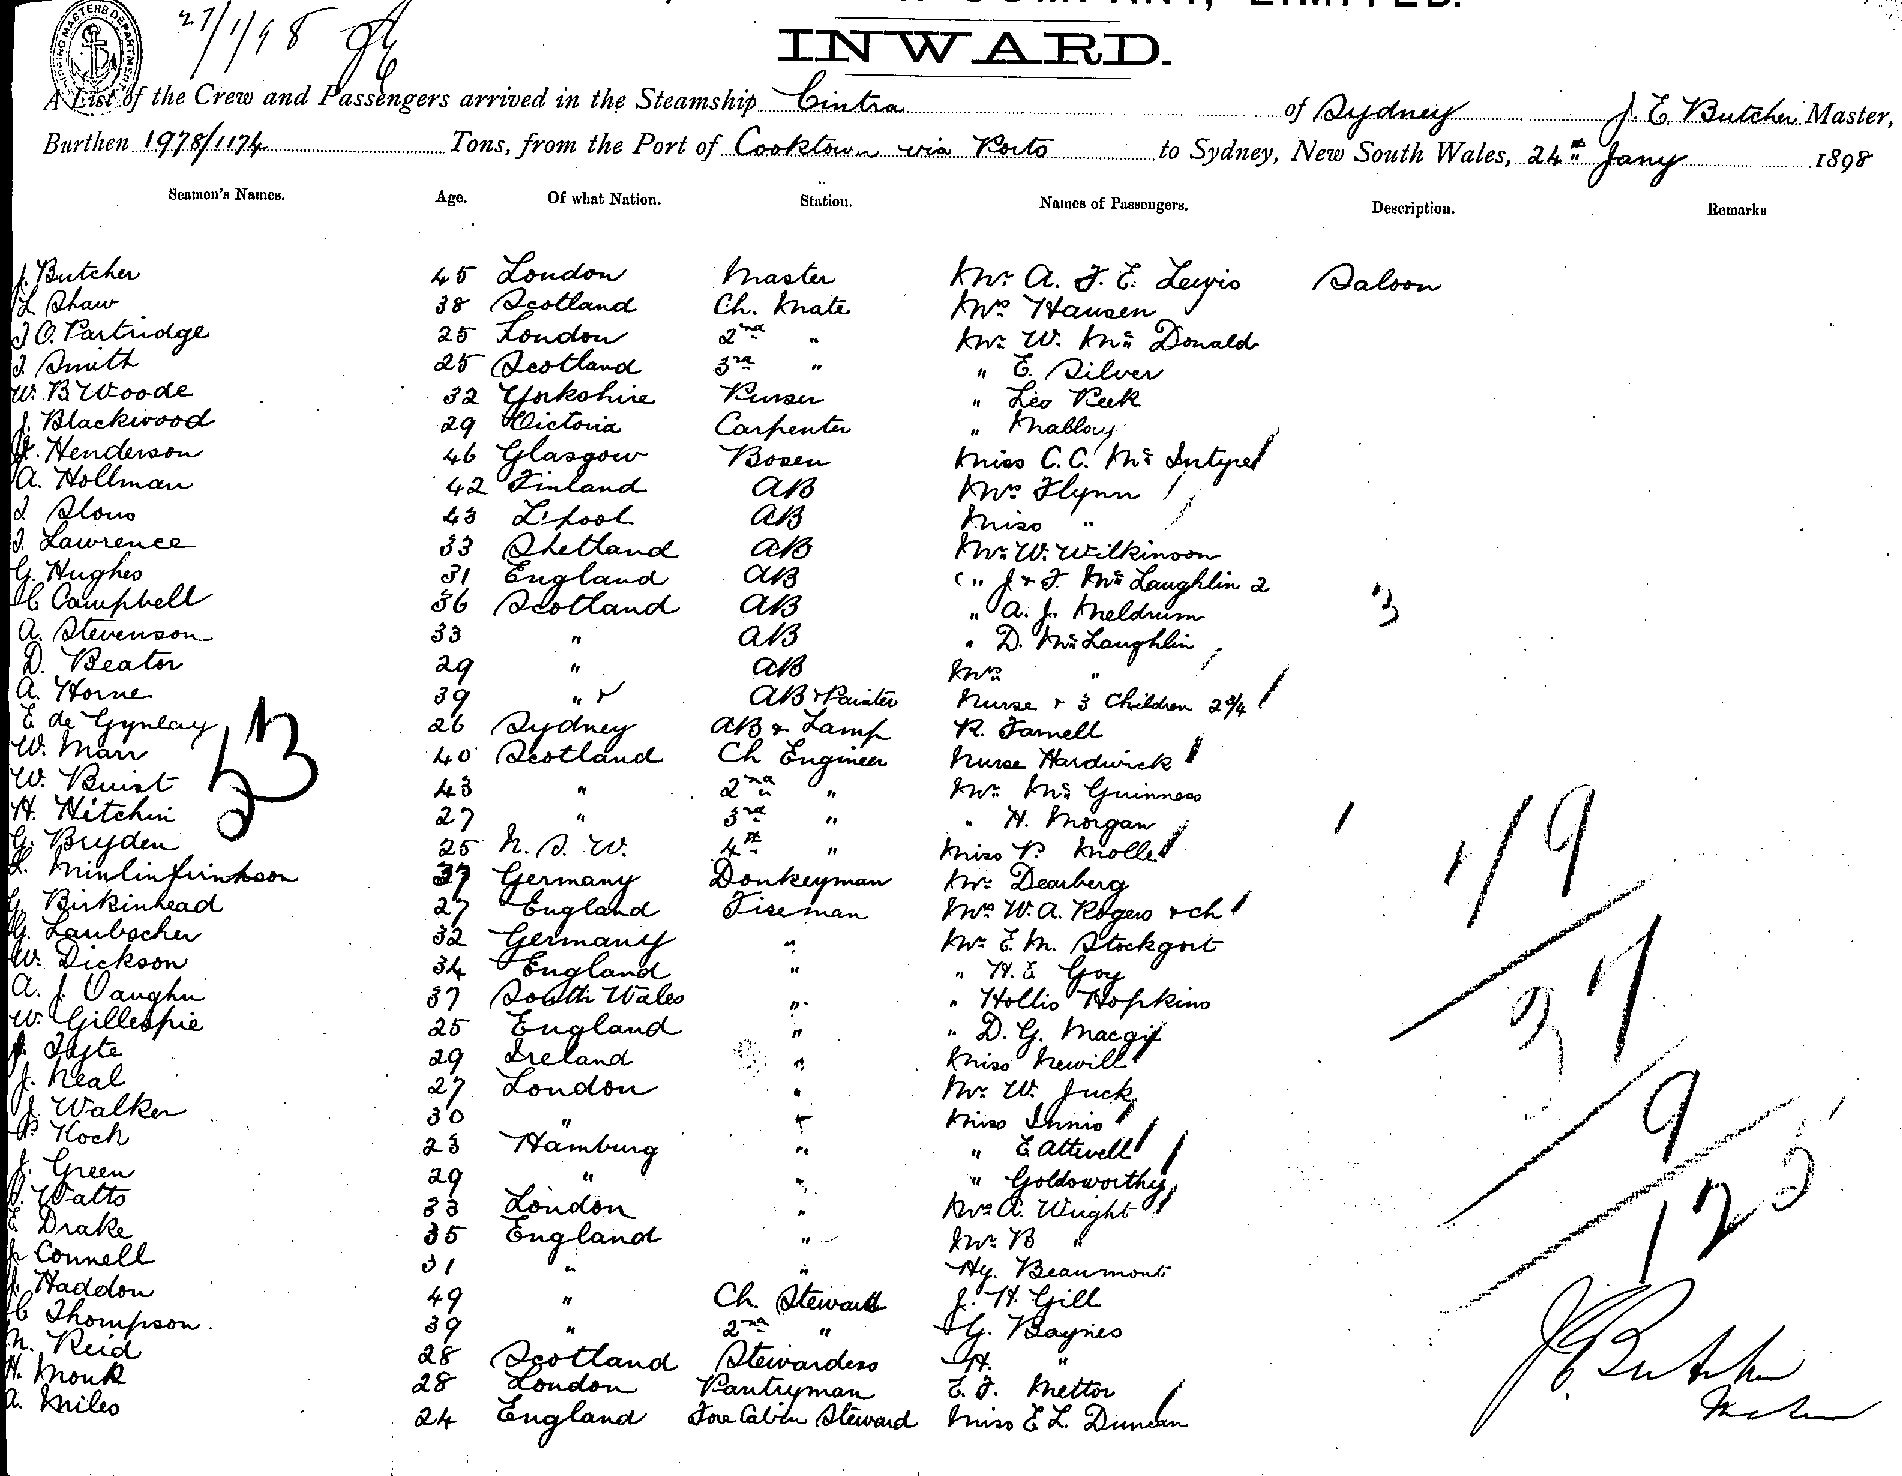 27/1/98
COMPANY, LIMITED.
INWARD.
A List of the Crew and Passengers arrived in the Steamship Cintra of Sydney J. E. Butcher Master,
Burthen 1978/1174 Tons, from the Port of Cooktown via Ports to Sydney, New South Wales, 24th Jany 1898
Seamen's Names. Age. Of what Nation. Station. Names of Passengers. Description. Remarks
J. Butcher 45 London Master Mr. A. F. E. Lewis Saloon
L Shaw 38 Scotland Ch. Mate Mrs Hansen
J O. Partridge 25 London 2nd " Mr. W. Mc Donald
J. Smith 25 Scotland 3rd " " E. Silver
W. B Woode 32 Yorkshire Purser " Leo Peek
J. Blackwood 29 Victoria Carpenter " Malloy
Henderson 46 Glasgow Bosen Miss C. C. Mc Intyre
A. Hollman 42 Finland AB Mrs Flynn
Slous 43 L'pool AB Miss "
J. Lawrence 33 Shetland AB Mr. W. Wilkinson
G. Hughes 31 England AB " J & F. Mc Laughlin 2
C Campbell 36 Scotland AB " A. J. Meldrum 3
A. Stevenson 33 " AB " D. Mc Laughlin
D. Beaton 29 " AB Mrs "
A. Horne 39 " AB & Painter Nurse & 3 Children 2 3/4
E de Gynlay 26 Sydney AB & Lamp R. Farnell
W. Marr 40 Scotland Ch Engineer Nurse Hardwick
W. Buist 43 " 2nd " Mr. Mc Guinness
H. Hitchin 27 " 3rd " " H. Morgan
G. Bryden 25 N. S. W. 4th " Miss P. Molle
37 Germany Donkeyman Mr. Dearberg
G Birkinhead 27 England Fireman Mrs W. A. Rogers & ch
G. Laubscher 32 Germany " Mr. E. M. Stockgort
W. Dickson 34 England " " H. E Goy
A. J. Vaughn 37 South Wales " " Hollis Hopkins
W. Gillespie 25 England " " D. G. Macgif
29 Ireland " Miss Newill
J. Neal 27 London " Mr. W. Juck
J Walker 30 " " Miss Innis
P Koch 23 Hamburg " " E Attwell
J. Green 29 " " " Goldsworthy
J. Watts 33 London " Mrs A. Wright
E Drake 35 England " Mr. B "
J Connell 31 " " Hy. Beaumont
J. Haddon 49 " Ch. Steward J. H. Gill
C Thompson. 39 " 2nd " G. Baynes
M. Reid 28 Scotland Stewardess H. "
H. Monk 28 London Pantryman E. J. Mettor
A. Miles 24 England Fore Cabin Steward Miss E L. Duncan
53
79
37
9
125
J E Butcher
Master